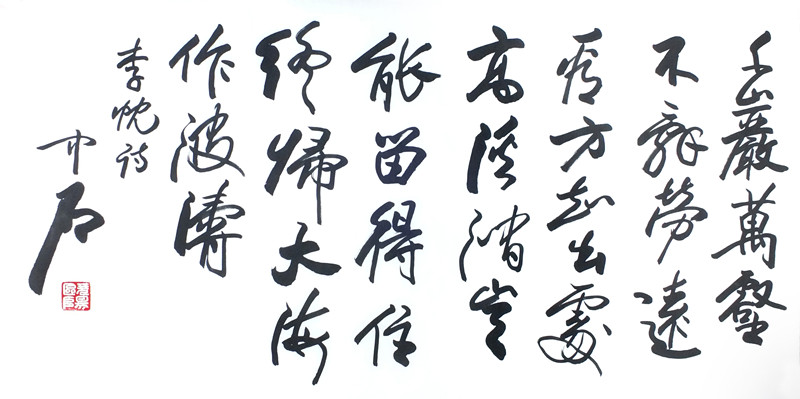 千巖萬壑
不辭勞遠
看方知出處
高溪澗豈
能留得住
終歸大海
作波濤
李忱詩
中石